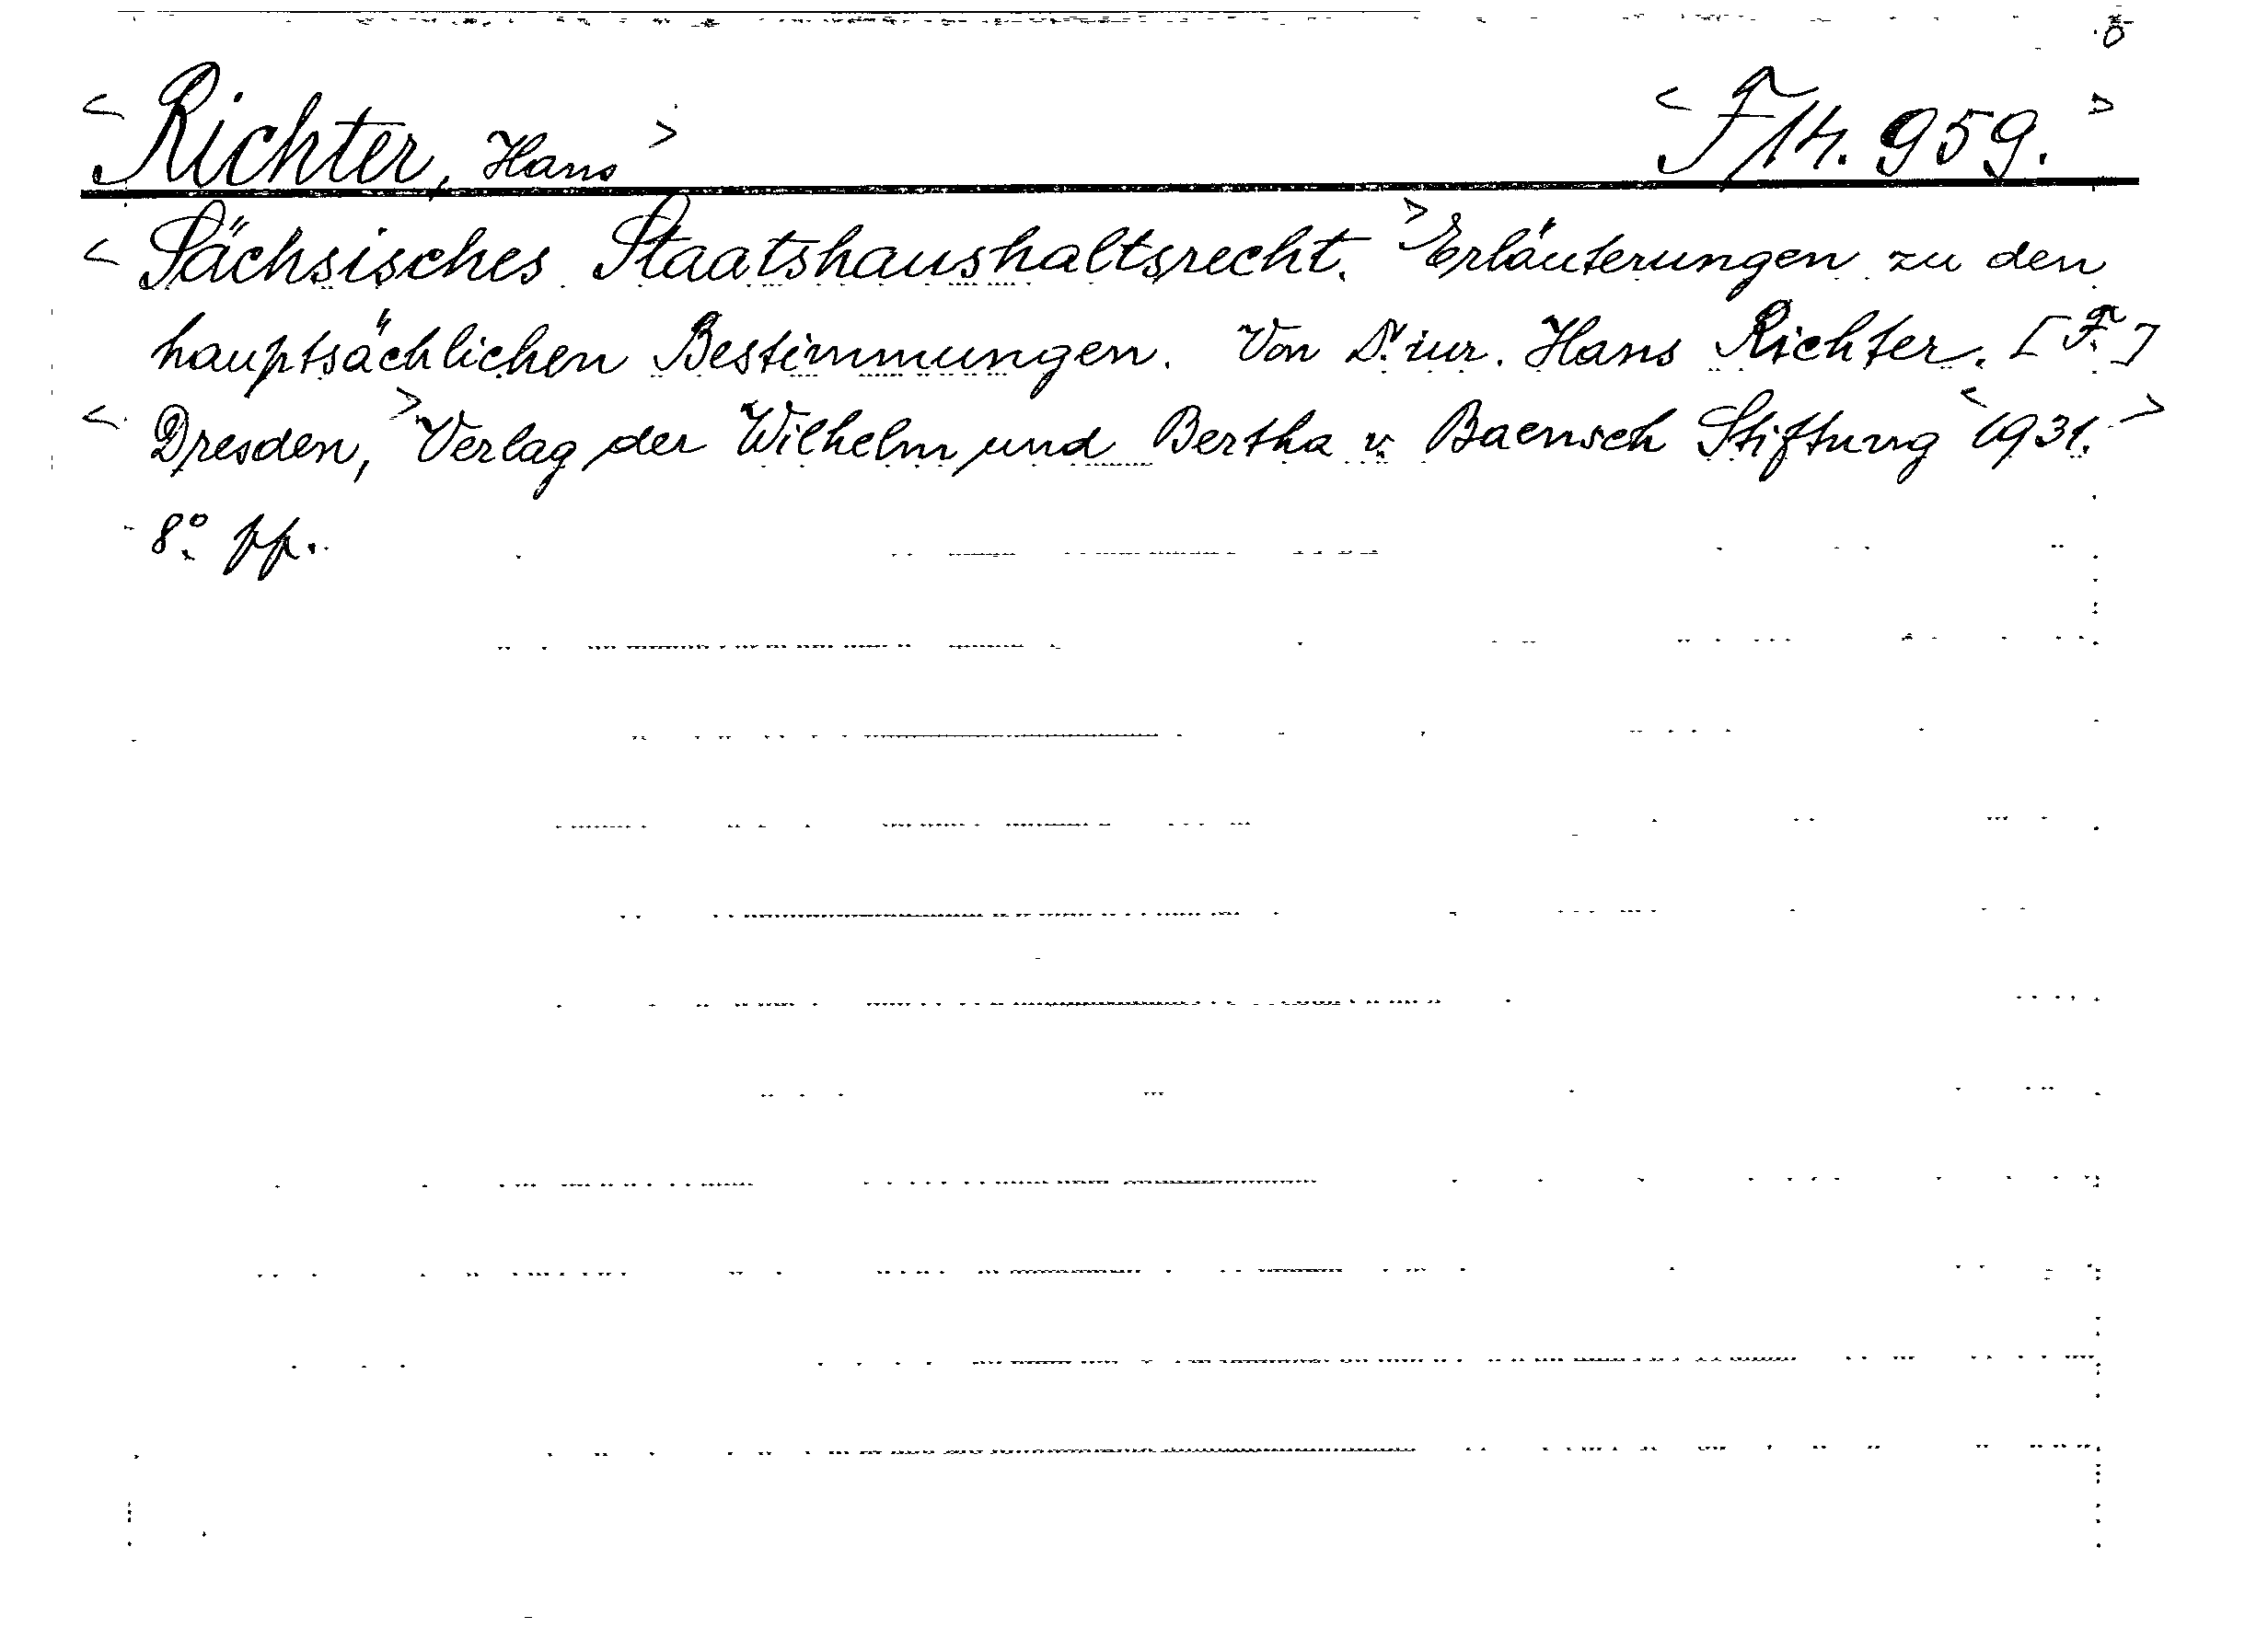 < Richter, Hans > < F 14.959. >
< Sächsisches Staatshaushaltsrecht. > Erläuterungen zu den
hauptsächlichen Bestimmungen. Von Dr. iur. Hans Richter. [F.]
< Dresden, > Verlag der Wilhelm und Bertha v. Baensch Stiftung < 1931. >
8° pp.